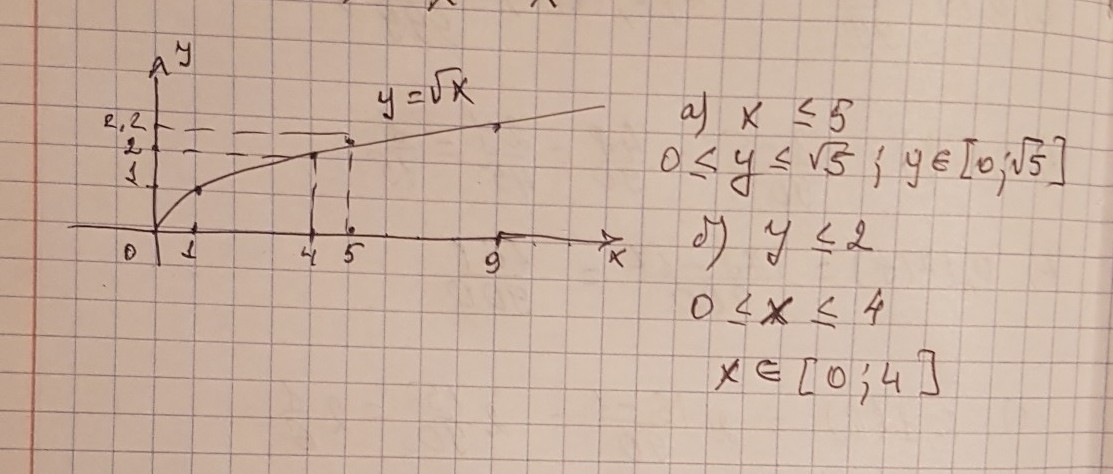 y
y = √x
2,2
2
1
0 1 4 5 9 x
а) x ≤ 5
0 ≤ y ≤ √5 ; y ∈ [0;√5]
б) y ≤ 2
0 ≤ x ≤ 4
x ∈ [0;4]